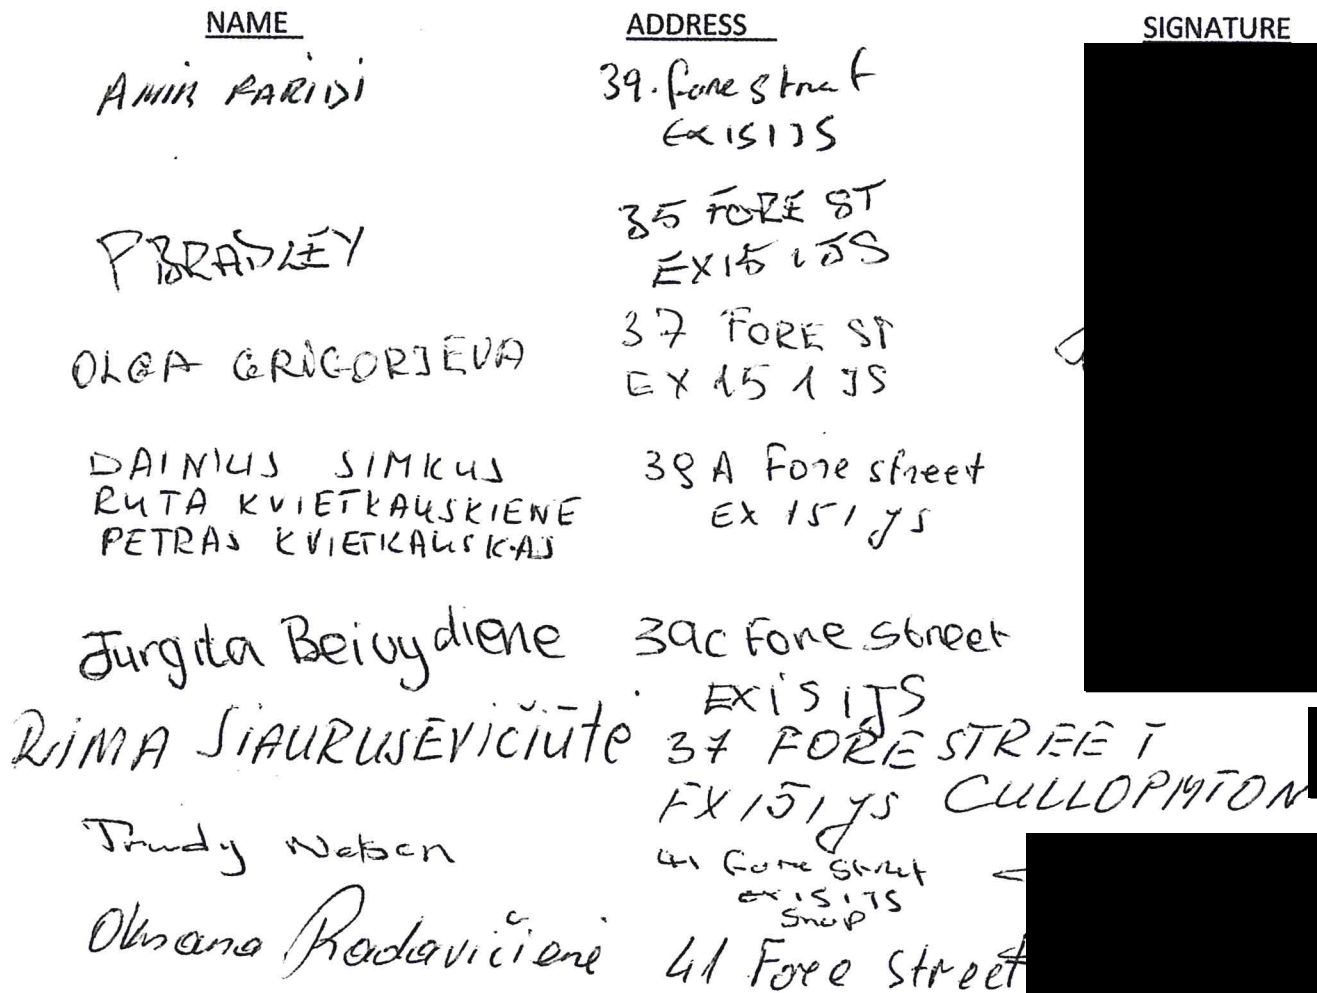 NAME ADDRESS SIGNATURE
AMIR FARIDI 39. fore street
EX151JS
P BRADLEY 35 FORE ST
EX15 1JS
OLGA GRIGORJEVA 37 FORE ST
EX 15 1 JS
DAINIUS SIMKUS 39 A Fore street
RUTA KVIETKAUSKIENE EX 151 JS
PETRAS KVIETKAUSKAS
Jurgita Beivydiene 39c Fore street
EX151JS
RIMA SIAURUSEVIČIŪTE 37 FORE STREET
EX 151 JS CULLOPMTON
Trudy 41 Fore Street
EX151JS
Oksana Radavičienė 41 Fore Street